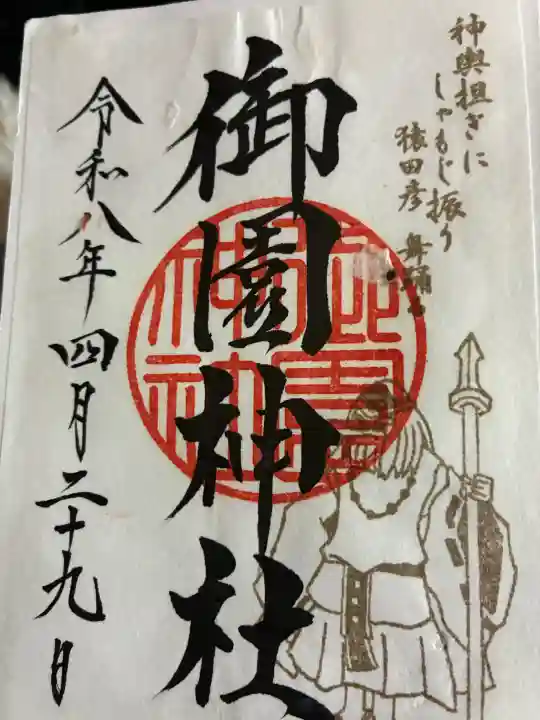 神輿担ぎに
しゃもじ振り
猿田彦 舞踊る
御園神社
令和八年四月二十九日